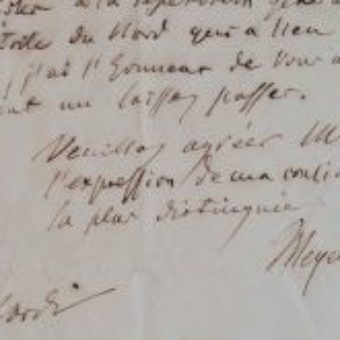 à la répétition
toile du Nord qui a lieu
j'ai l'honneur de vous a
un laissez passer.
Veuillez agréer M
l'expression de ma consi
la plus distinguée
Meye